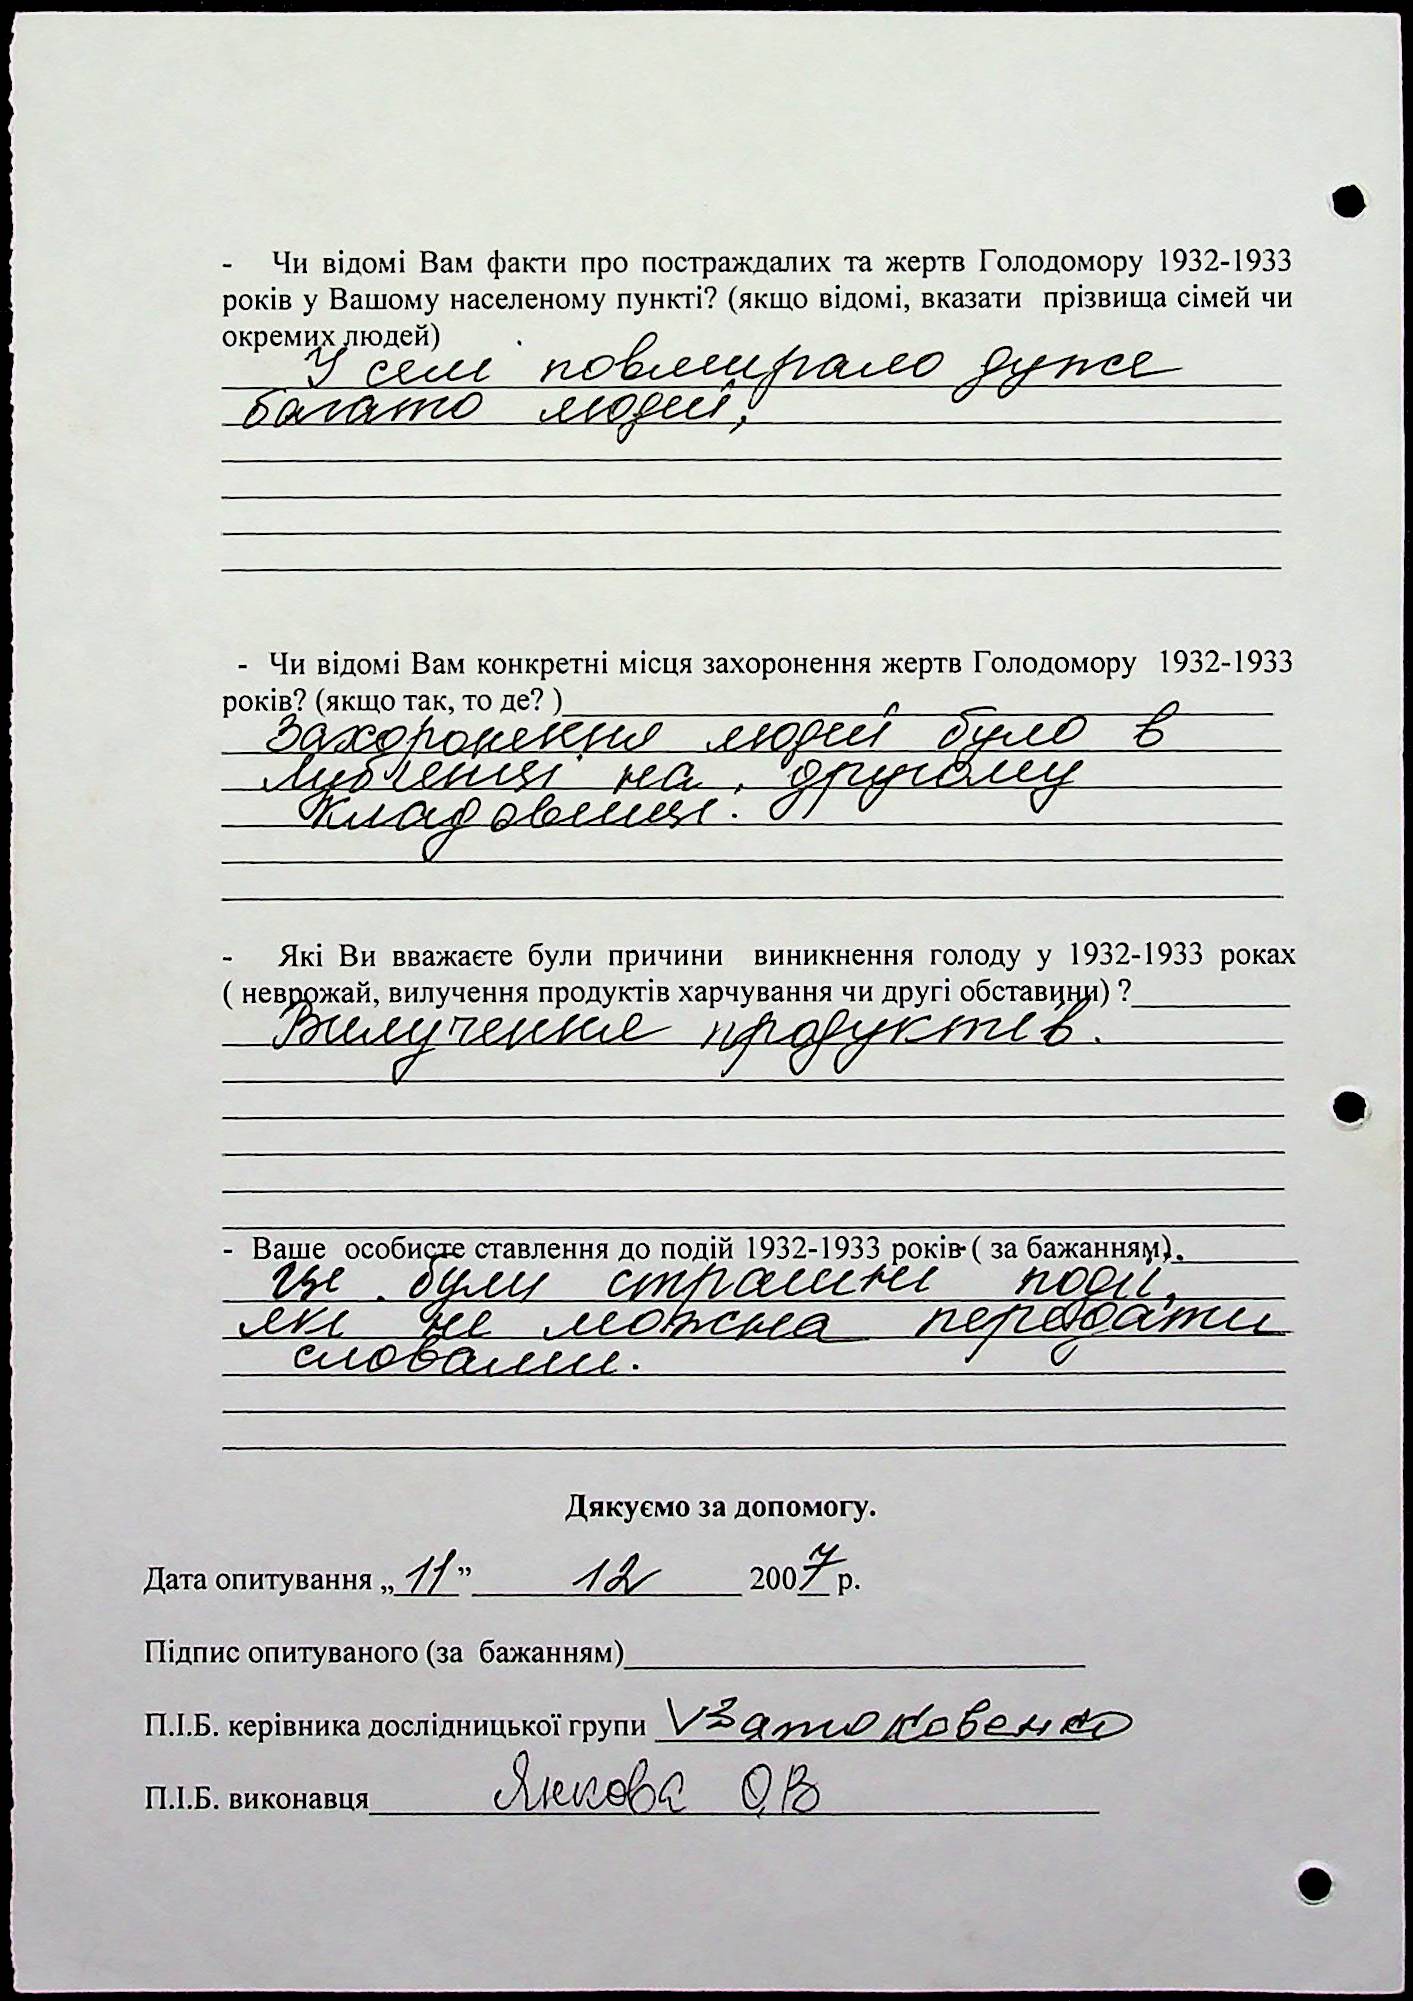 - Чи відомі Вам факти про постраждалих та жертв Голодомору 1932-1933
років у Вашому населеному пункті? (якщо відомі, вказати прізвища сімей чи
окремих людей)
У селі повмирало дуже
багато людей,
- Чи відомі Вам конкретні місця захоронення жертв Голодомору 1932-1933
років? (якщо так, то де? )
Захоронення людей було в
на другому
кладовищі.
- Які Ви вважаєте були причини виникнення голоду у 1932-1933 роках
( неврожай, вилучення продуктів харчування чи другі обставини) ?
Вилучення продуктів.
- Ваше особисте ставлення до подій 1932-1933 років ( за бажанням).
Це були страшні події,
які не можна передати
словами.
Дякуємо за допомогу.
Дата опитування „ 11 ” 12 2007 р.
Підпис опитуваного (за бажанням)
П.І.Б. керівника дослідницької групи
П.І.Б. виконавця Янкова О,В